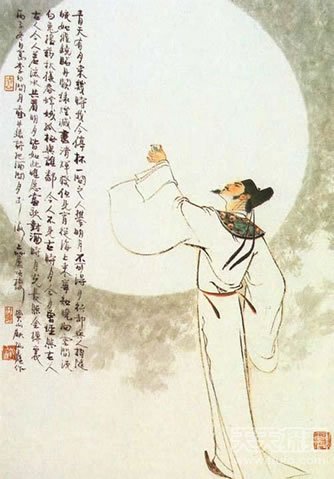 青天有月来幾時我今停杯一問之人攀明月不可得月行却与人相随
皎如飛鏡臨丹闕綠烟滅盡清輝發但見宵從海上來寧知曉向雲間沒
白兔搗藥秋復春嫦娥孤栖與誰鄰今人不見古時月今月曾經照古人
古人今人若流水共看明月皆如此唯愿當歌對酒時月光長照金樽裏